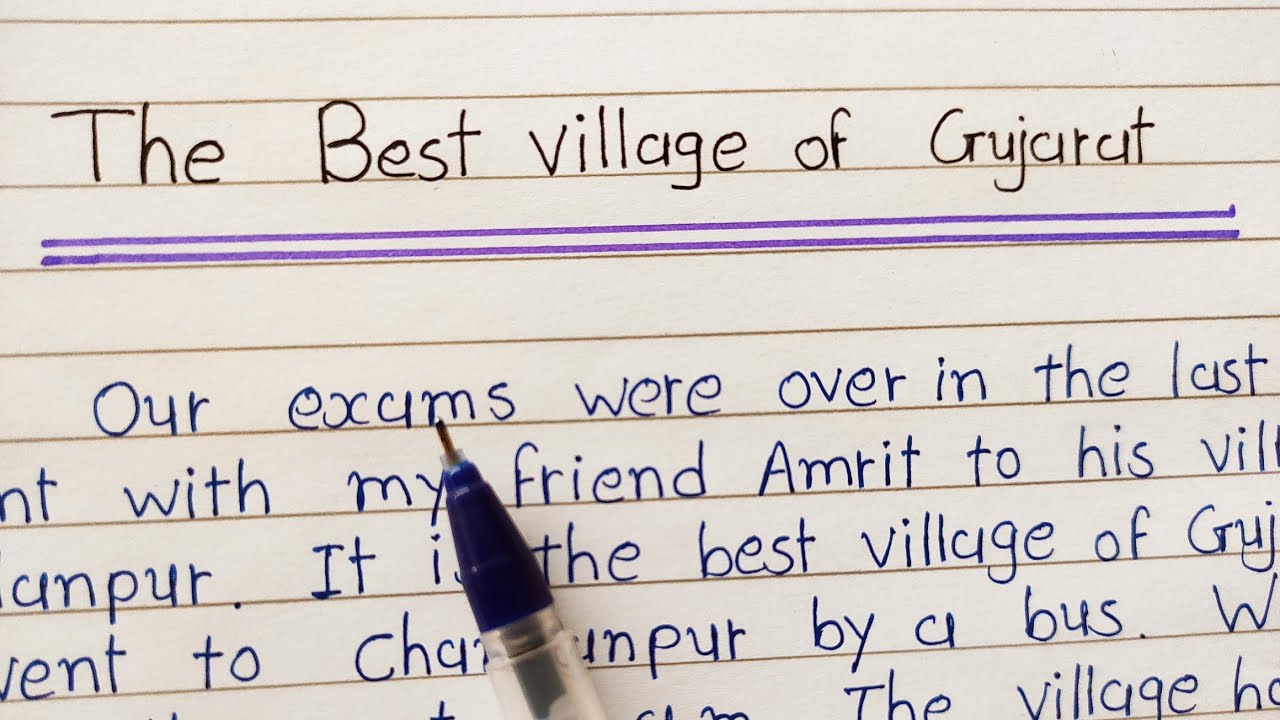 The Best village of Gujarat
Our exams were over in the last
nt with my friend Amrit to his vill
anpur. It is the best village of Guj
vent to Cha anpur by a bus. W
The village ha